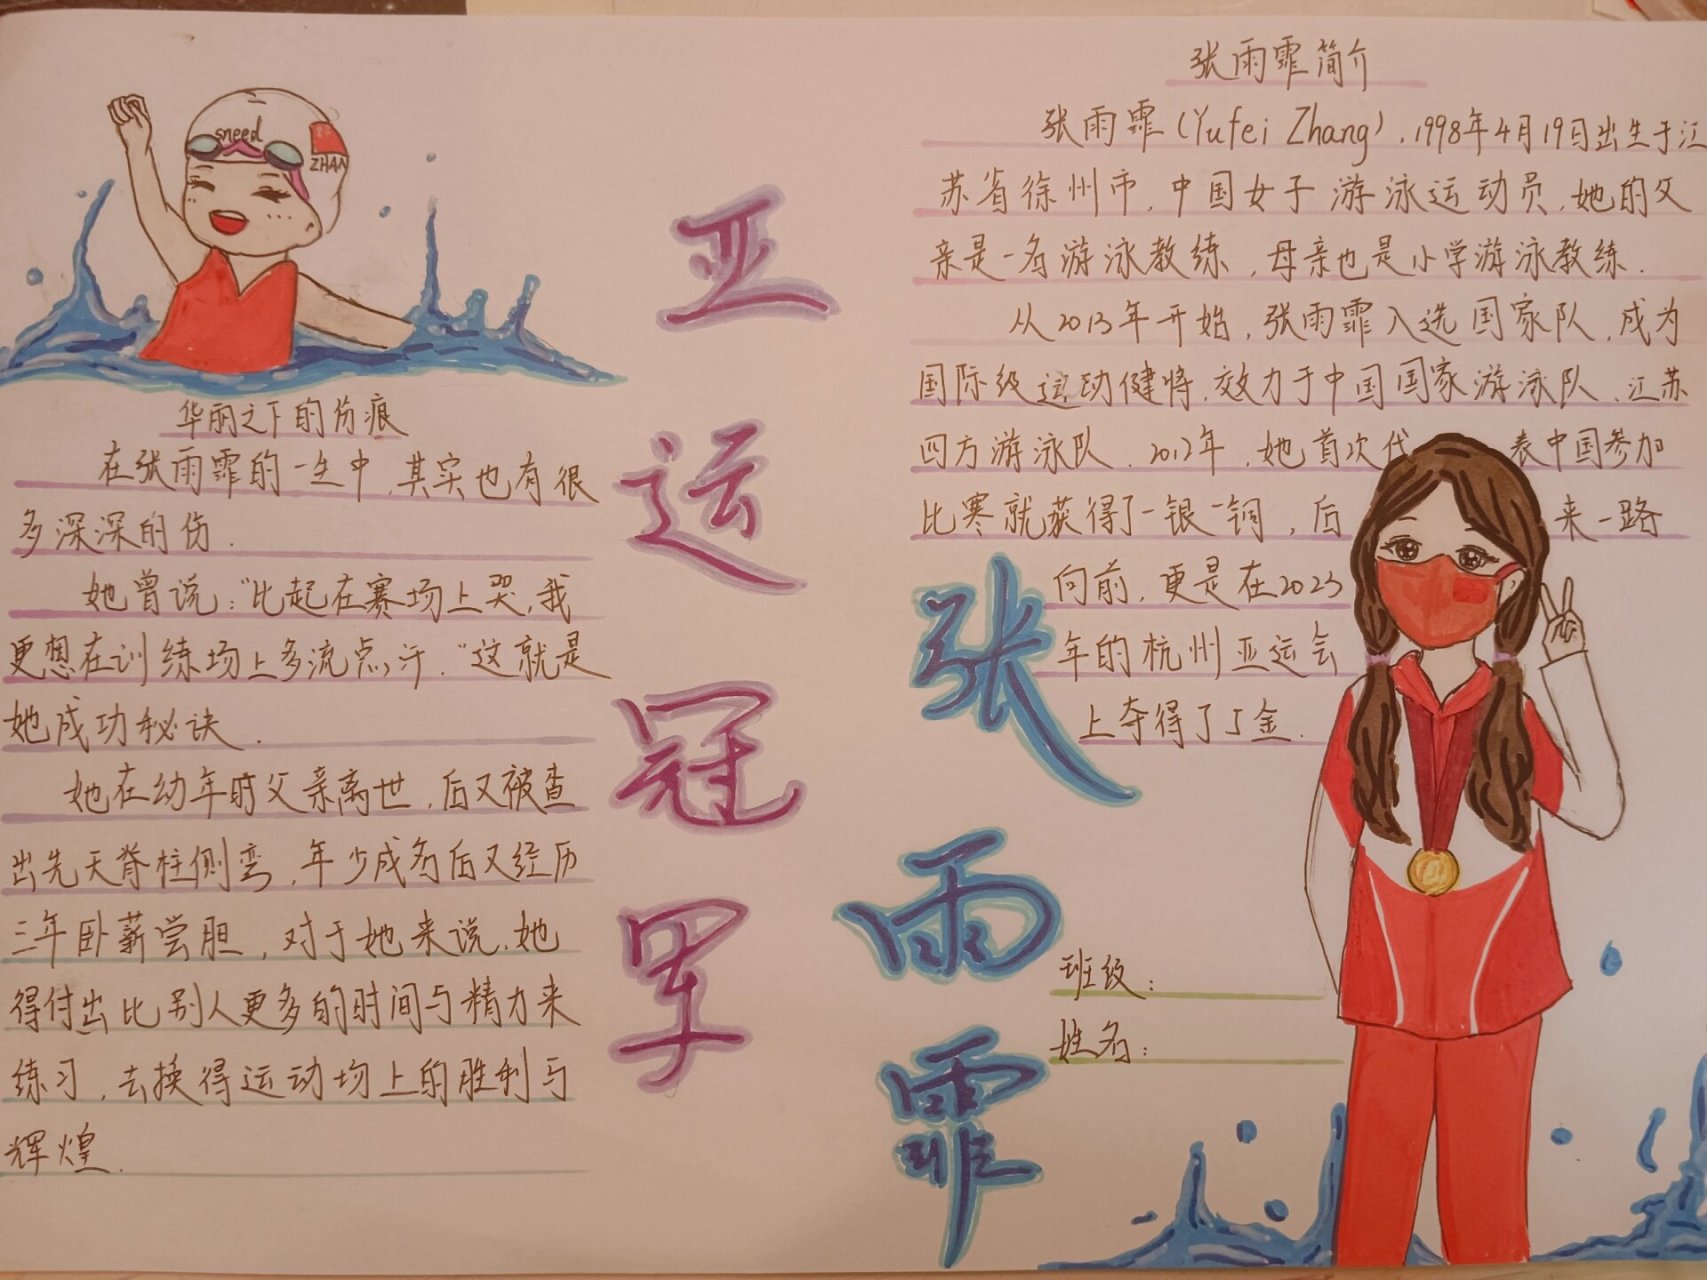 sneed
ZHAN
华丽之下的伤痕
在张雨霏的一生中,其实也有很
多深深的伤.
她曾说:"比起在赛场上哭,我
更想在训练场上多流点汗."这就是
她成功秘诀.
她在幼年时父亲离世,后又被查
出先天脊柱侧弯,年少成名后又经历
三年卧薪尝胆,对于她来说,她
得付出比别人更多的时间与精力来
练习,去换得运动场上的胜利与
辉煌.
亚
运
冠
军
张
雨
霏
张雨霏简介
张雨霏(Yufei Zhang),1998年4月19日出生于江
苏省徐州市,中国女子游泳运动员,她的父
亲是一名游泳教练,母亲也是小学游泳教练.
从2013年开始,张雨霏入选国家队,成为
国际级运动健将,效力于中国国家游泳队、江苏
四方游泳队.2012年,她首次代表中国参加
比赛就获得了一银一铜,后来一路
向前,更是在2023
年的杭州亚运会
上夺得了5金.
班级:
姓名: